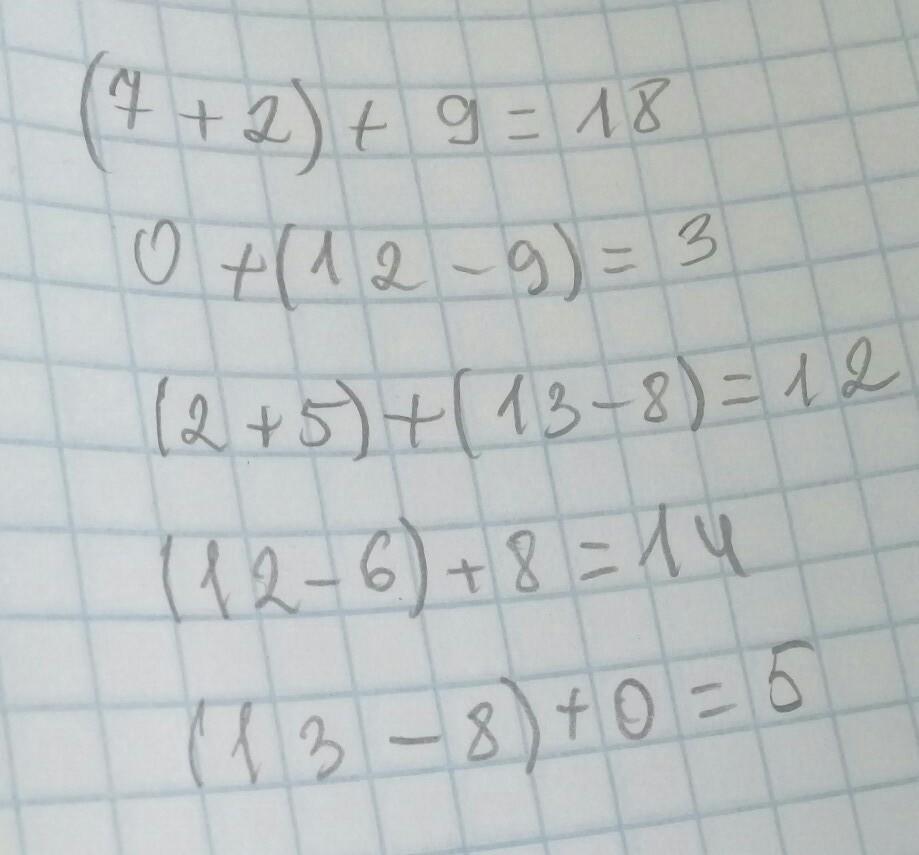 (7 + 2) + 9 = 18
0 + (12 - 9) = 3
(2 + 5) + (13 - 8) = 12
(12 - 6) + 8 = 14
(13 - 8) + 0 = 5